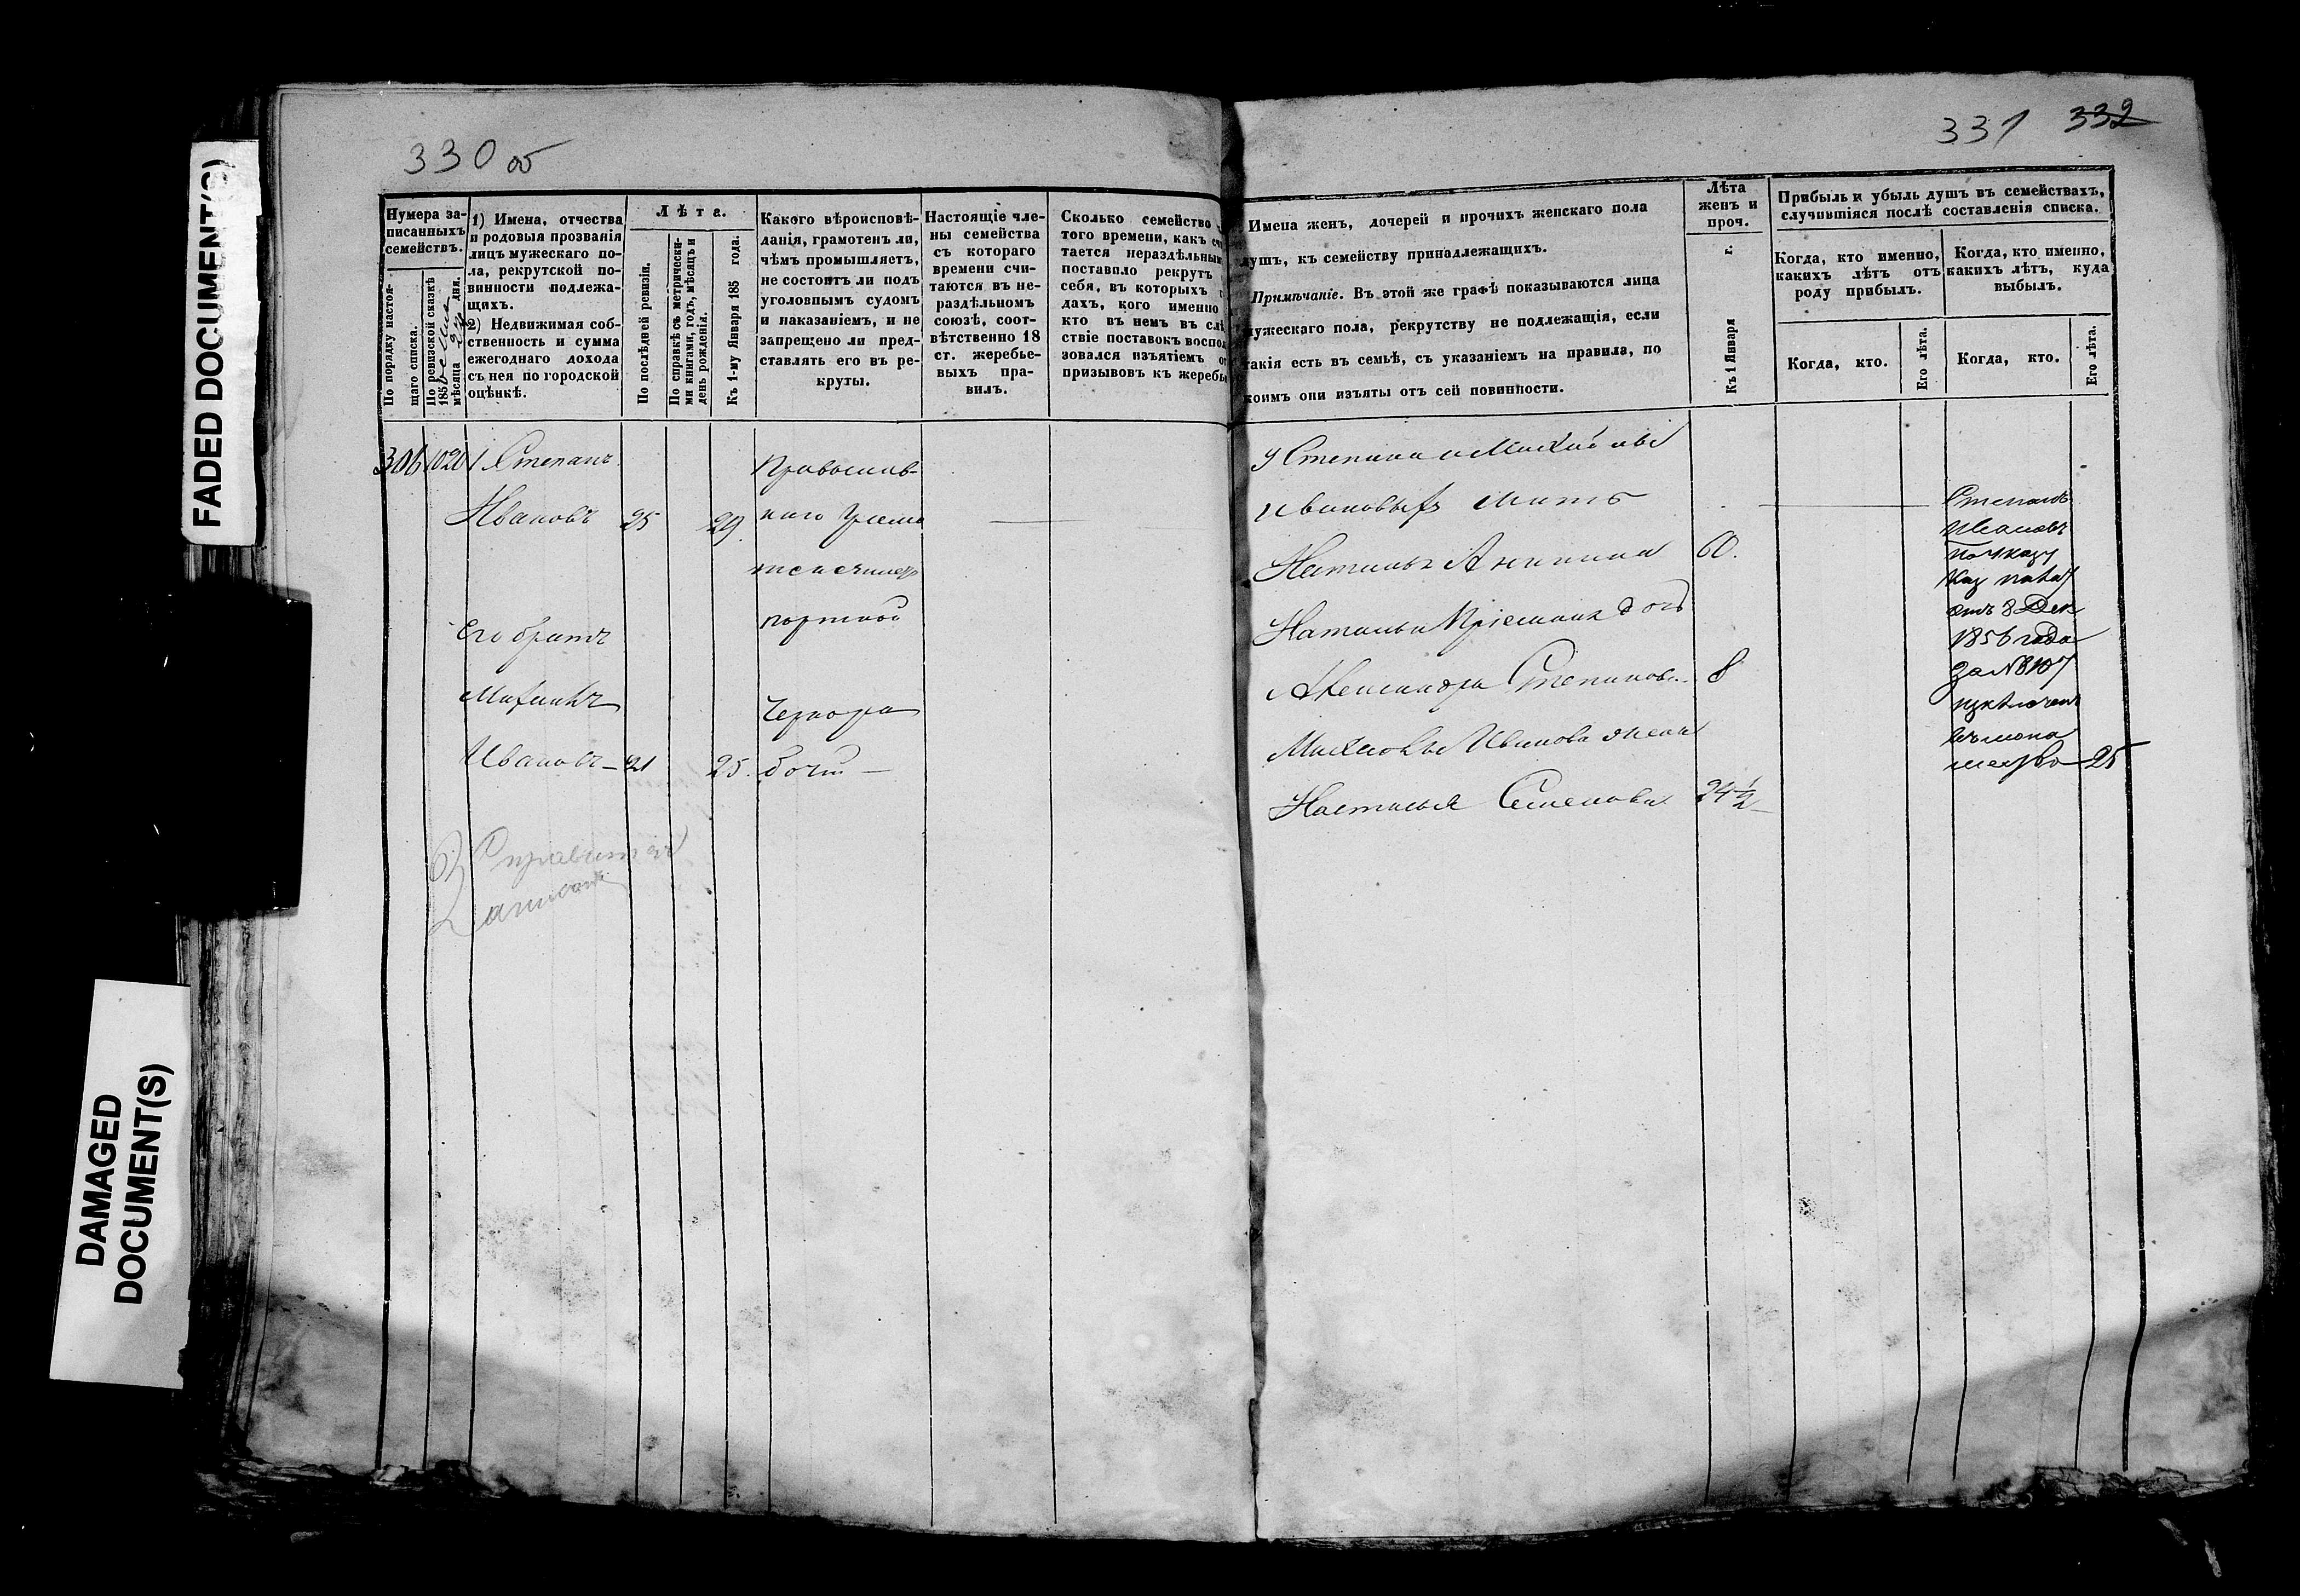 FADED DOCUMENT(S)
DAMAGED
DOCUMENT(S)
330 об
Нумера за-
писанныхъ
семействъ.
По порядку настоя-
щаго списка.
По ревизской сказкѣ
185
мѣсяца
дня.
1) Имена, отчества
и родовыя прозванія
лицъ мужескаго по-
ла, рекрутской по-
винности подлежа-
щихъ.
2) Недвижимая соб-
ственность и сумма
ежегоднаго дохода
съ нея по городской
оцѣнкѣ.
Лѣта.
По послѣдней ревизіи.
По справкѣ съ метрически-
ми книгами, годъ, мѣсяцъ и
день рожденія.
Къ 1-му Января 185 года.
Какого вѣроисповѣ-
данія, грамотенъ ли,
чѣмъ промышляетъ,
не состоитъ ли подъ
уголовнымъ судомъ
и наказаніемъ, и не
запрещено ли пред-
ставлять его въ ре-
круты.
Настоящіе чле-
ны семейства
съ котораго
времени счи-
таются въ не-
раздѣльномъ
союзѣ, соот-
вѣтственно 18
ст. жеребье-
выхъ пра-
вилъ.
Сколько семейство
того времени, какъ
тается нераздѣльнымъ
поставило рекрутъ
себя, въ которыхъ
дахъ, кого именно
кто въ немъ въ слѣ
ствіе поставокъ воспол
зовался изъятіемъ
призывовъ къ жеребь
306 1020 1 Степанъ
Ивановъ 25 29
Его братъ
Ивановъ - 21 25.
Православ-
портной
Черпора
боч
331 332
Имена женъ, дочерей и прочихъ женскаго пола
душъ, къ семейству принадлежащихъ.
Примѣчаніе. Въ этой же графѣ показываются лица
мужескаго пола, рекрутству не подлежащія, если
такія есть въ семьѣ, съ указаніемъ на правила, по
коимъ они изъяты отъ сей повинности.
Лѣта
женъ и
проч.
Къ 1 Января г.
Прибыль и убыль душъ въ семействахъ,
случившіяся послѣ составленія списка.
Когда, кто именно,
какихъ лѣтъ отъ
роду прибылъ.
Когда, кто именно,
какихъ лѣтъ, куда
выбылъ.
Когда, кто.
Его лѣта.
Когда, кто.
Его лѣта.
У Степана и
Ивановыхъ мать
Наталья 60.
Наталья дочь
Александра Степанова 8
Иванова жена
Настасья Семенова 24½
Степанъ
Ивановъ
по указу
Каз палат
отъ 8 Дек
1856 года
за №
изключенъ
въ мона
25